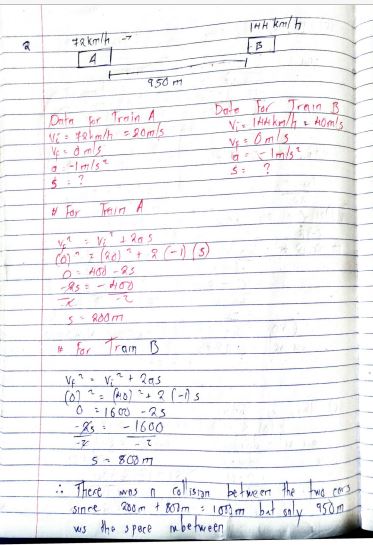 2
72km/h →
144 km/h
A
B
950 m
Data for Train A
Vi = 72km/h = 20m/s
Vf = 0 m/s
a = -1m/s²
S = ?
Data For Train B
Vi = 144km/h = 40m/s
Vf = 0m/s
a = -1m/s²
S = ?
# For Train A
Vf² = Vi² + 2as
(0)² = (20)² + 2 (-1) (S)
0 = 400 - 2S
-2s = -400
-2 -2
S = 200m
# For Train B
Vf² = Vi² + 2as
(0)² = (40)² + 2 (-1) s
0 = 1600 - 2S
-2s = -1600
-2 -2
S = 800m
∴ There was a collision between the two cars
since 200m + 800m = 1000m but only 950m
was the space between